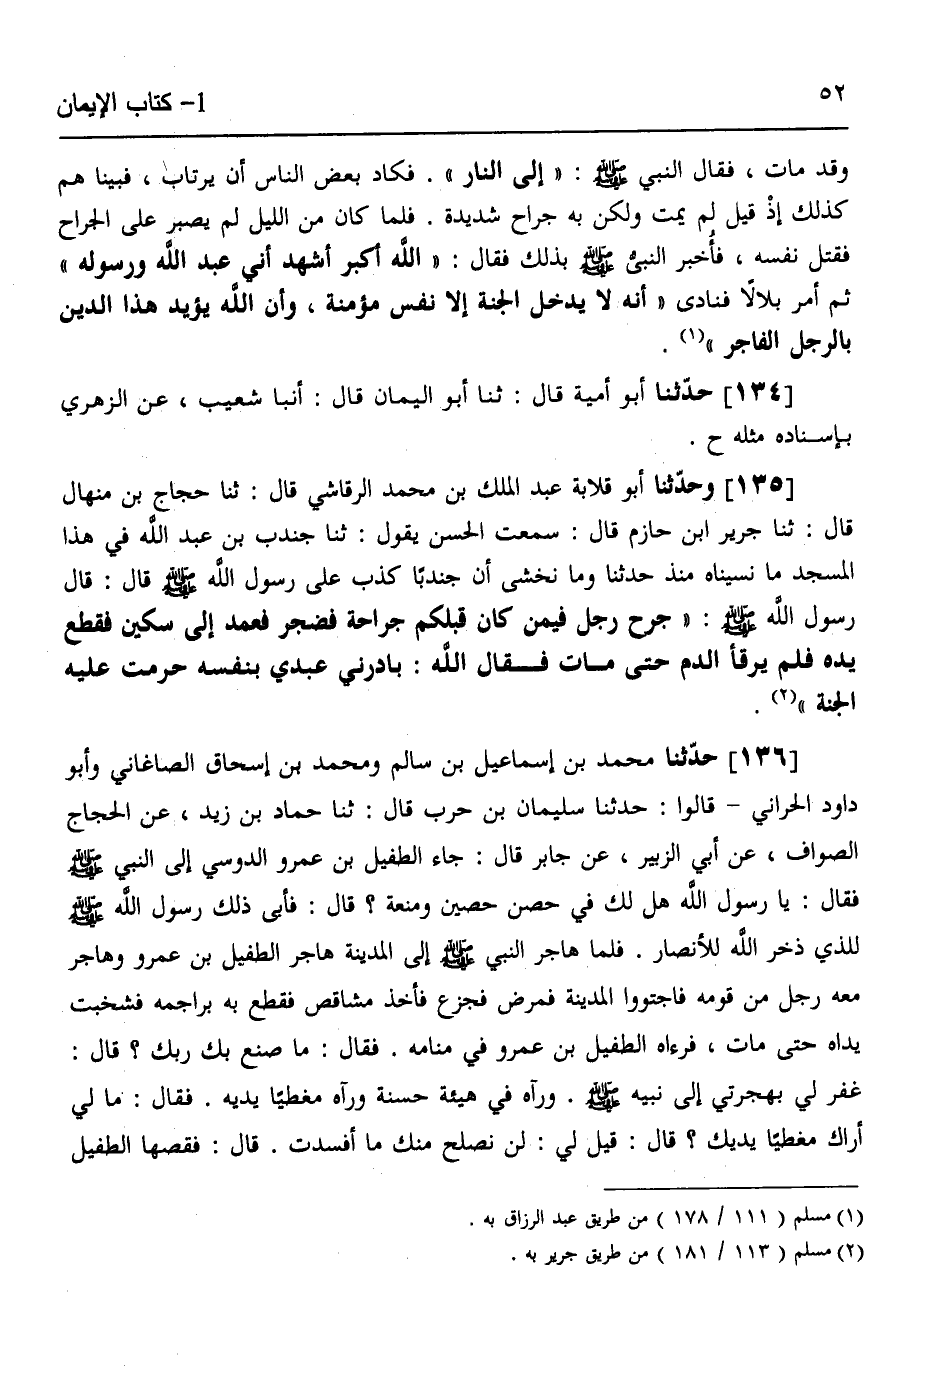 ٥٢
1- كتاب الإيمان
وقد مات ، فقال النبي ﷺ : « إلى النار » . فكاد بعض الناس أن يرتاب ، فبينا هم
كذلك إذْ قيل لم يمت ولكن به جراح شديدة . فلما كان من الليل لم يصبر على الجراح
فقتل نفسه ، فأُخبر النبيُّ ﷺ بذلك فقال : « اللَّه أكبر أشهد أني عبد اللَّه ورسوله »
ثم أمر بلالًا فنادى « أنه لا يدخل الجنة إلا نفس مؤمنة ، وأن اللَّه يؤيد هذا الدين
بالرجل الفاجر »(١) .
[١٣٤] حدّثنا أبو أمية قال : ثنا أبو اليمان قال : أنبا شعيب ، عن الزهري
بإسناده مثله ح .
[١٣٥] وحدّثنا أبو قلابة عبد الملك بن محمد الرقاشي قال : ثنا حجاج بن منهال
قال : ثنا جرير ابن حازم قال : سمعت الحسن يقول : ثنا جندب بن عبد اللَّه في هذا
المسجد ما نسيناه منذ حدثنا وما نخشى أن جندبًا كذب على رسول اللَّه ﷺ قال : قال
رسول اللَّه ﷺ : « جرح رجل فيمن كان قبلكم جراحة فضجر فعمد إلى سكين فقطع
يده فلم يرقأ الدم حتى مات فقال اللَّه : بادرني عبدي بنفسه حرمت عليه
الجنة »(٢) .
[١٣٦] حدّثنا محمد بن إسماعيل بن سالم ومحمد بن إسحاق الصاغاني وأبو
داود الحراني – قالوا : حدثنا سليمان بن حرب قال : ثنا حماد بن زيد ، عن الحجاج
الصواف ، عن أبي الزبير ، عن جابر قال : جاء الطفيل بن عمرو الدوسي إلى النبي ﷺ
فقال : يا رسول اللَّه هل لك في حصن حصين ومنعة ؟ قال : فأبى ذلك رسول اللَّه ﷺ
للذي ذخر اللَّه للأنصار . فلما هاجر النبي ﷺ إلى المدينة هاجر الطفيل بن عمرو وهاجر
معه رجل من قومه فاجتووا المدينة فمرض فجزع فأخذ مشاقص فقطع به براجمه فشخبت
يداه حتى مات ، فرءاه الطفيل بن عمرو في منامه . فقال : ما صنع بك ربك ؟ قال :
غفر لي بهجرتي إلى نبيه ﷺ . ورآه في هيئة حسنة ورآه مغطيًا يديه . فقال : ما لي
أراك مغطيًا يديك ؟ قال : قيل لي : لن نصلح منك ما أفسدت . قال : فقصها الطفيل
(١) مسلم ( ١١١ / ١٧٨ ) من طريق عبد الرزاق به .
(٢) مسلم ( ١١٣ / ١٨١ ) من طريق جرير به .